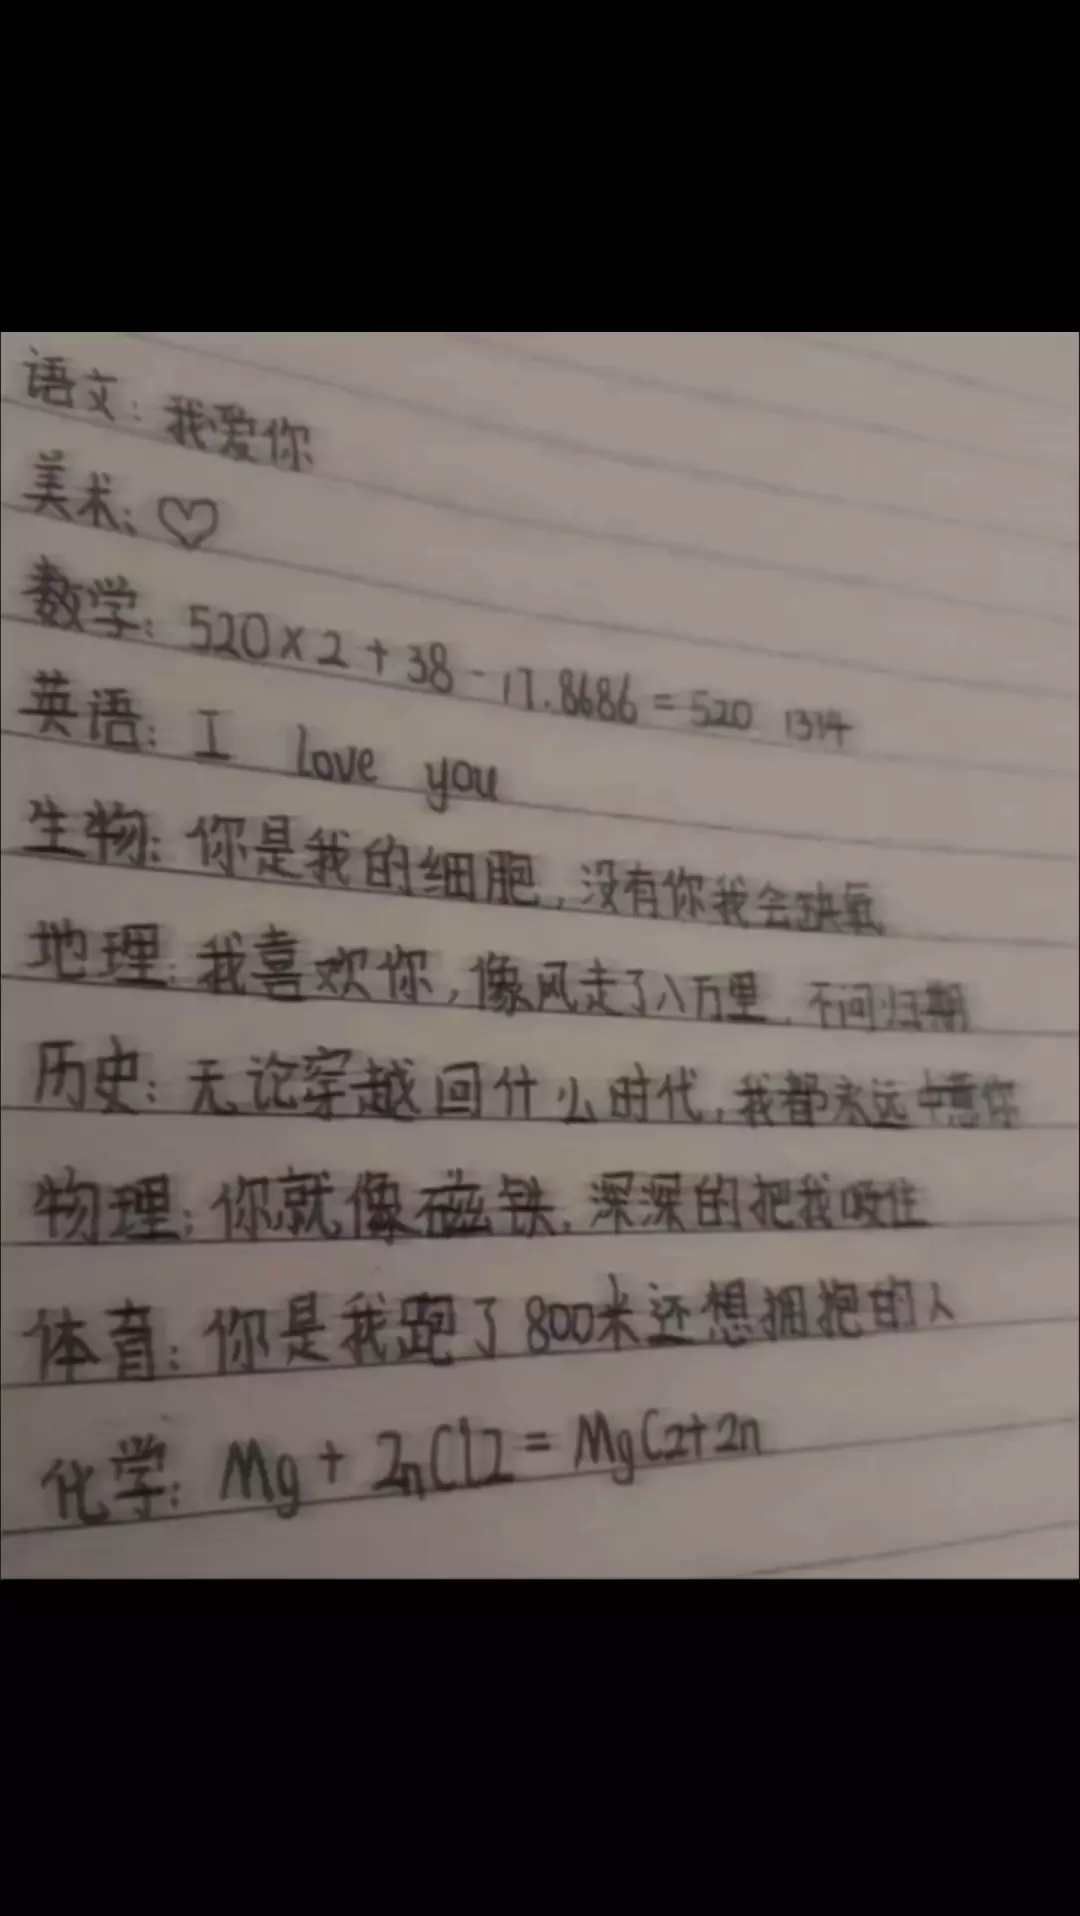 语文：我爱你
美术：♡
数学：520×2+38-17.8686=520 1314
英语：I love you
生物：你是我的细胞，没有你我会缺氧
地理：我喜欢你，像风走了八万里，不问归期
历史：无论穿越回什么时代，我都永远中意你
物理：你就像磁铁，深深的把我吸住
体育：你是我跑了800米还想拥抱的人
化学：Mg+ZnCl2=MgC2+Zn